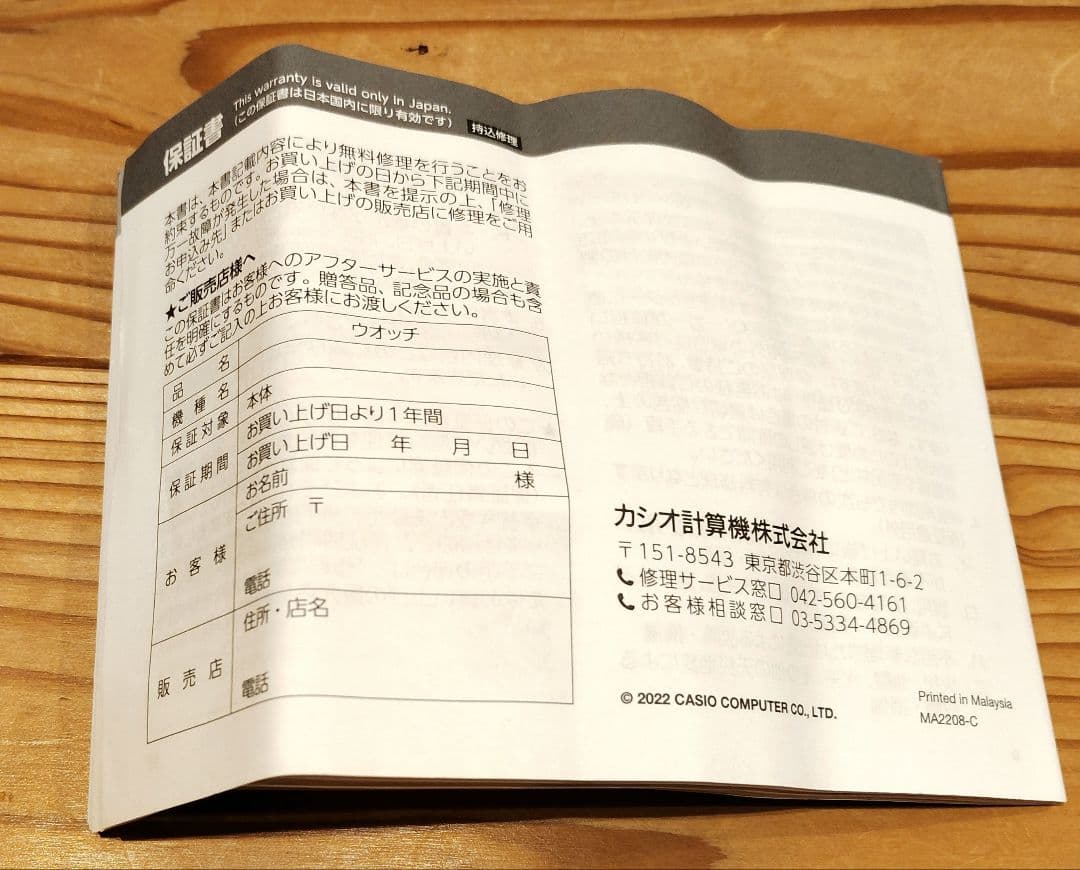 保証書
This warranty is valid only in Japan.
(この保証書は日本国内に限り有効です)
持込修理
本書は、本書記載内容により無料修理を行うことをお
約束するものです。お買い上げの日から下記期間中に
万一故障が発生した場合は、本書を提示の上、「修理
お申込み先」またはお買い上げの販売店に修理をご用
命ください。
★ご販売店様へ
この保証書はお客様へのアフターサービスの実施と責
任を明確にするものです。贈答品、記念品の場合も含
めて必ずご記入の上お客様にお渡しください。
品名 ウオッチ
機種名
保証対象 本体
保証期間 お買い上げ日より1年間
お買い上げ日 年 月 日
お客様 お名前 様
ご住所 〒
電話
販売店 住所・店名
電話
カシオ計算機株式会社
〒151-8543 東京都渋谷区本町1-6-2
修理サービス窓口 042-560-4161
お客様相談窓口 03-5334-4869
© 2022 CASIO COMPUTER CO., LTD.
Printed in Malaysia
MA2208-C